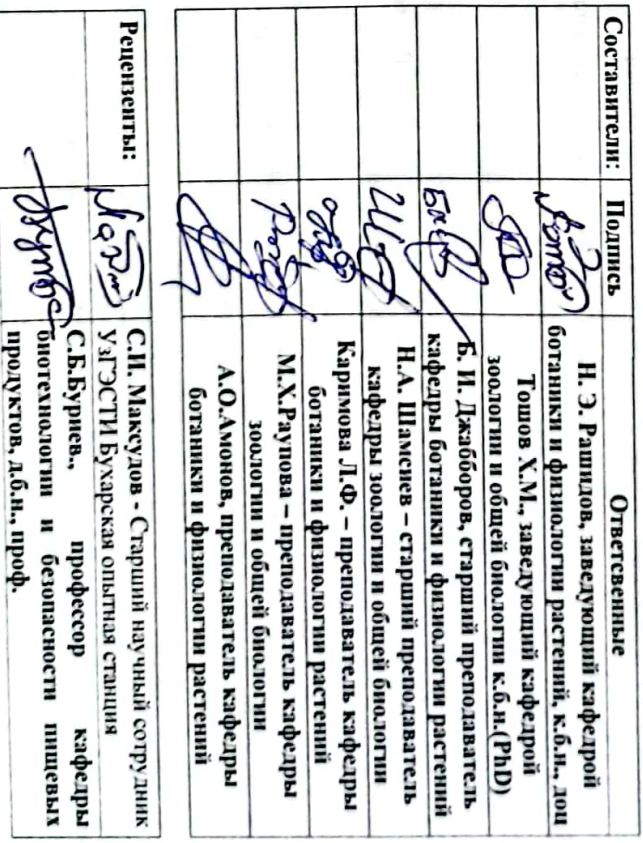 Составители: Подпись Ответсвенные
Н. Э. Рашидов, заведующий кафедрой
ботаники и физиологии растений, к.б.н., доц
Тошов Х.М., заведующий кафедрой
зоологии и общей биологии к.б.н.(PhD)
Б. И. Джабборов, старший преподаватель
кафедры ботаники и физиологии растений
Н.А. Шамсиев – старший преподаватель
кафедры зоологии и общей биологии
Каримова Л.Ф. – преподаватель кафедры
ботаники и физиологии растений
М.Х.Раупова – преподаватель кафедры
зоологии и общей биологии
А.О.Амонов, преподаватель кафедры
ботаники и физиологии растений
Рецензенты:
С.И. Максудов - Старший научный сотрудник
УзГЭСТИ Бухарская опытная станция
С.Б.Буриев., профессор кафедры
биотехнологии и безопасности пищевых
продуктов, д.б.н., проф.